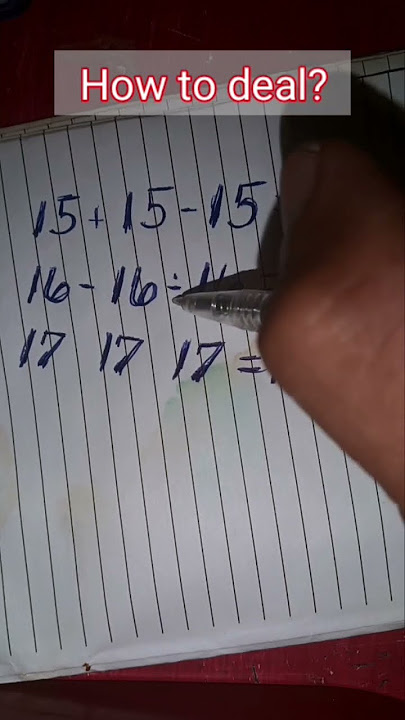 How to deal?
15 + 15 - 15
16 - 16 ÷
17 17 17 =